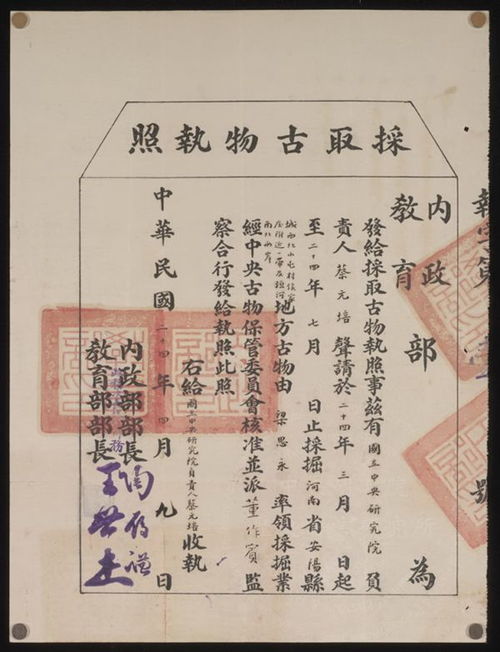 採取古物執照
號
內政
教育
部為
發給採取古物執照事茲有國立中央研究院負
責人蔡元培聲請於二十四年三月 日起
至二十四年七月 日止採掘河南省安陽縣
城西北小屯村侯家
莊附近一帶及洹河
南北兩岸
地方古物由梁思永率領採掘業
經中央古物保管委員會核准並派董作賓監
察合行發給執照此照
右給國立中央研究院負責人蔡元培收執
中華民國二十四年四月九日
內政部部長陶履謙
教育部部長王世杰